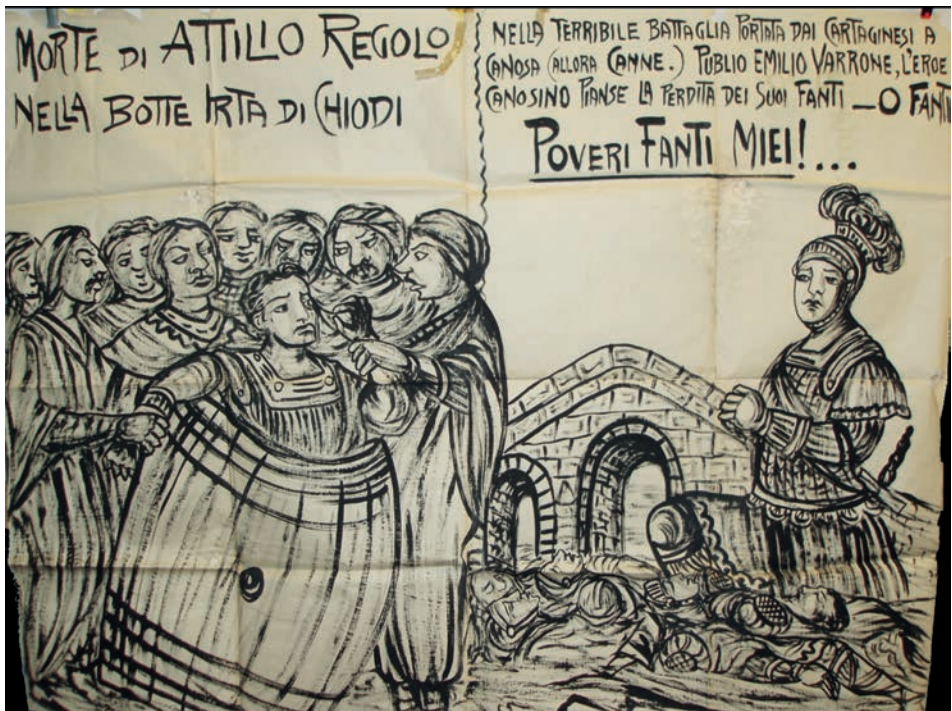 MORTE DI ATTILIO REGOLO
NELLA BOTTE IRTA DI CHIODI
NELLA TERRIBILE BATTAGLIA PORTATA DAI CARTAGINESI A
CANOSA (ALLORA CANNE.) PUBLIO EMILIO VARRONE, L'EROE
CANOSINO PIANSE LA PERDITA DEI SUOI FANTI — O FANTI
POVERI FANTI MIEI!...